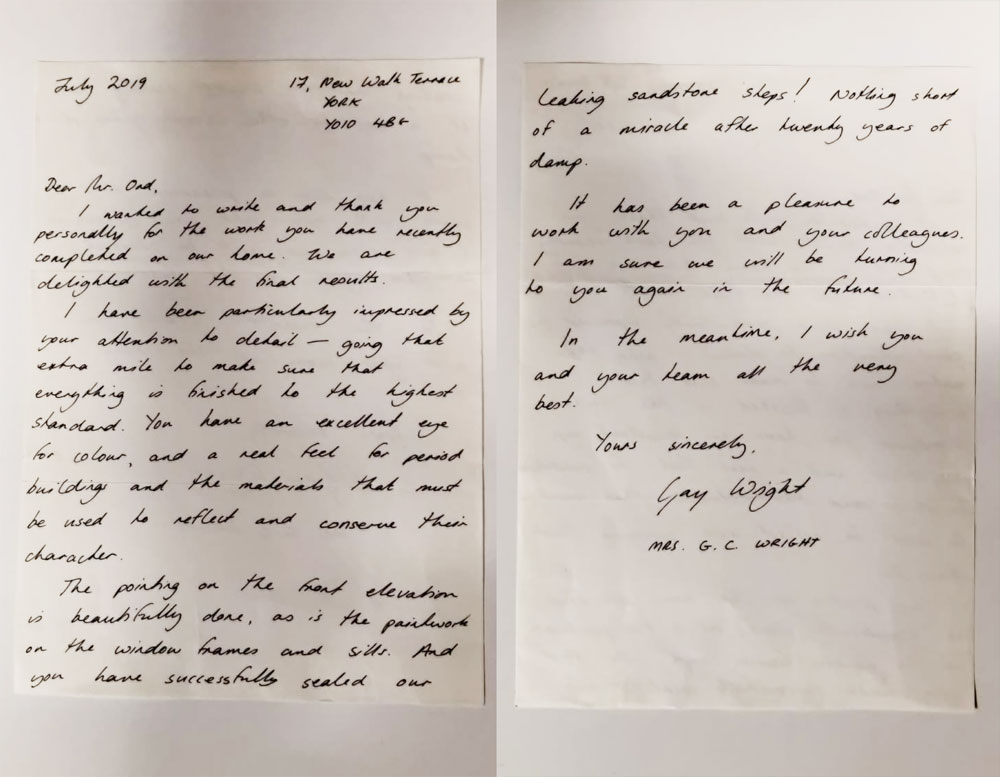 July 2019
17, New Walk Terrace
YORK
YO10 4BG
Dear Mr. Ord,
I wanted to write and thank you
personally for the work you have recently
completed on our home. We are
delighted with the final results.
I have been particularly impressed by
your attention to detail — going that
extra mile to make sure that
everything is finished to the highest
standard. You have an excellent eye
for colour, and a real feel for period
buildings and the materials that must
be used to reflect and conserve their
character.
The pointing on the front elevation
is beautifully done, as is the paintwork
on the window frames and sills. And
you have successfully sealed our
leaking sandstone steps! Nothing short
of a miracle after twenty years of
damp.
It has been a pleasure to
work with you and your colleagues.
I am sure we will be turning
to you again in the future.
In the meantime, I wish you
and your team all the very
best.
Yours sincerely,
Gay Wright
MRS. G. C. WRIGHT